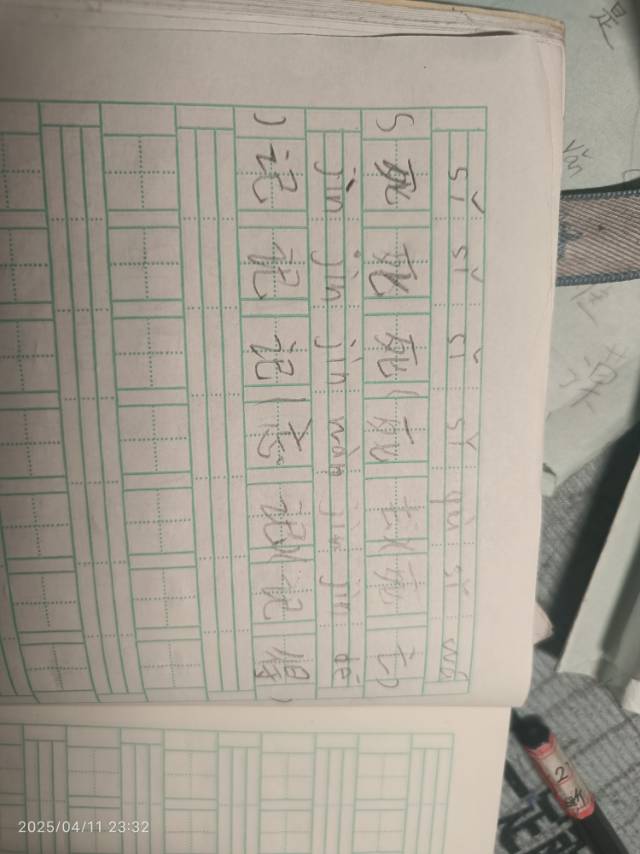 sǐ sǐ sǐ sǐ qù sǐ
死 死 死(死 去)(死 亡
jìn jìn jìn wàn jìn jìn dé
)记 记 记(忘 记)(记 得)
2025/04/11 23:32